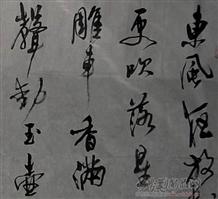 東風夜放
更吹落星
雕車香滿
聲動玉壺